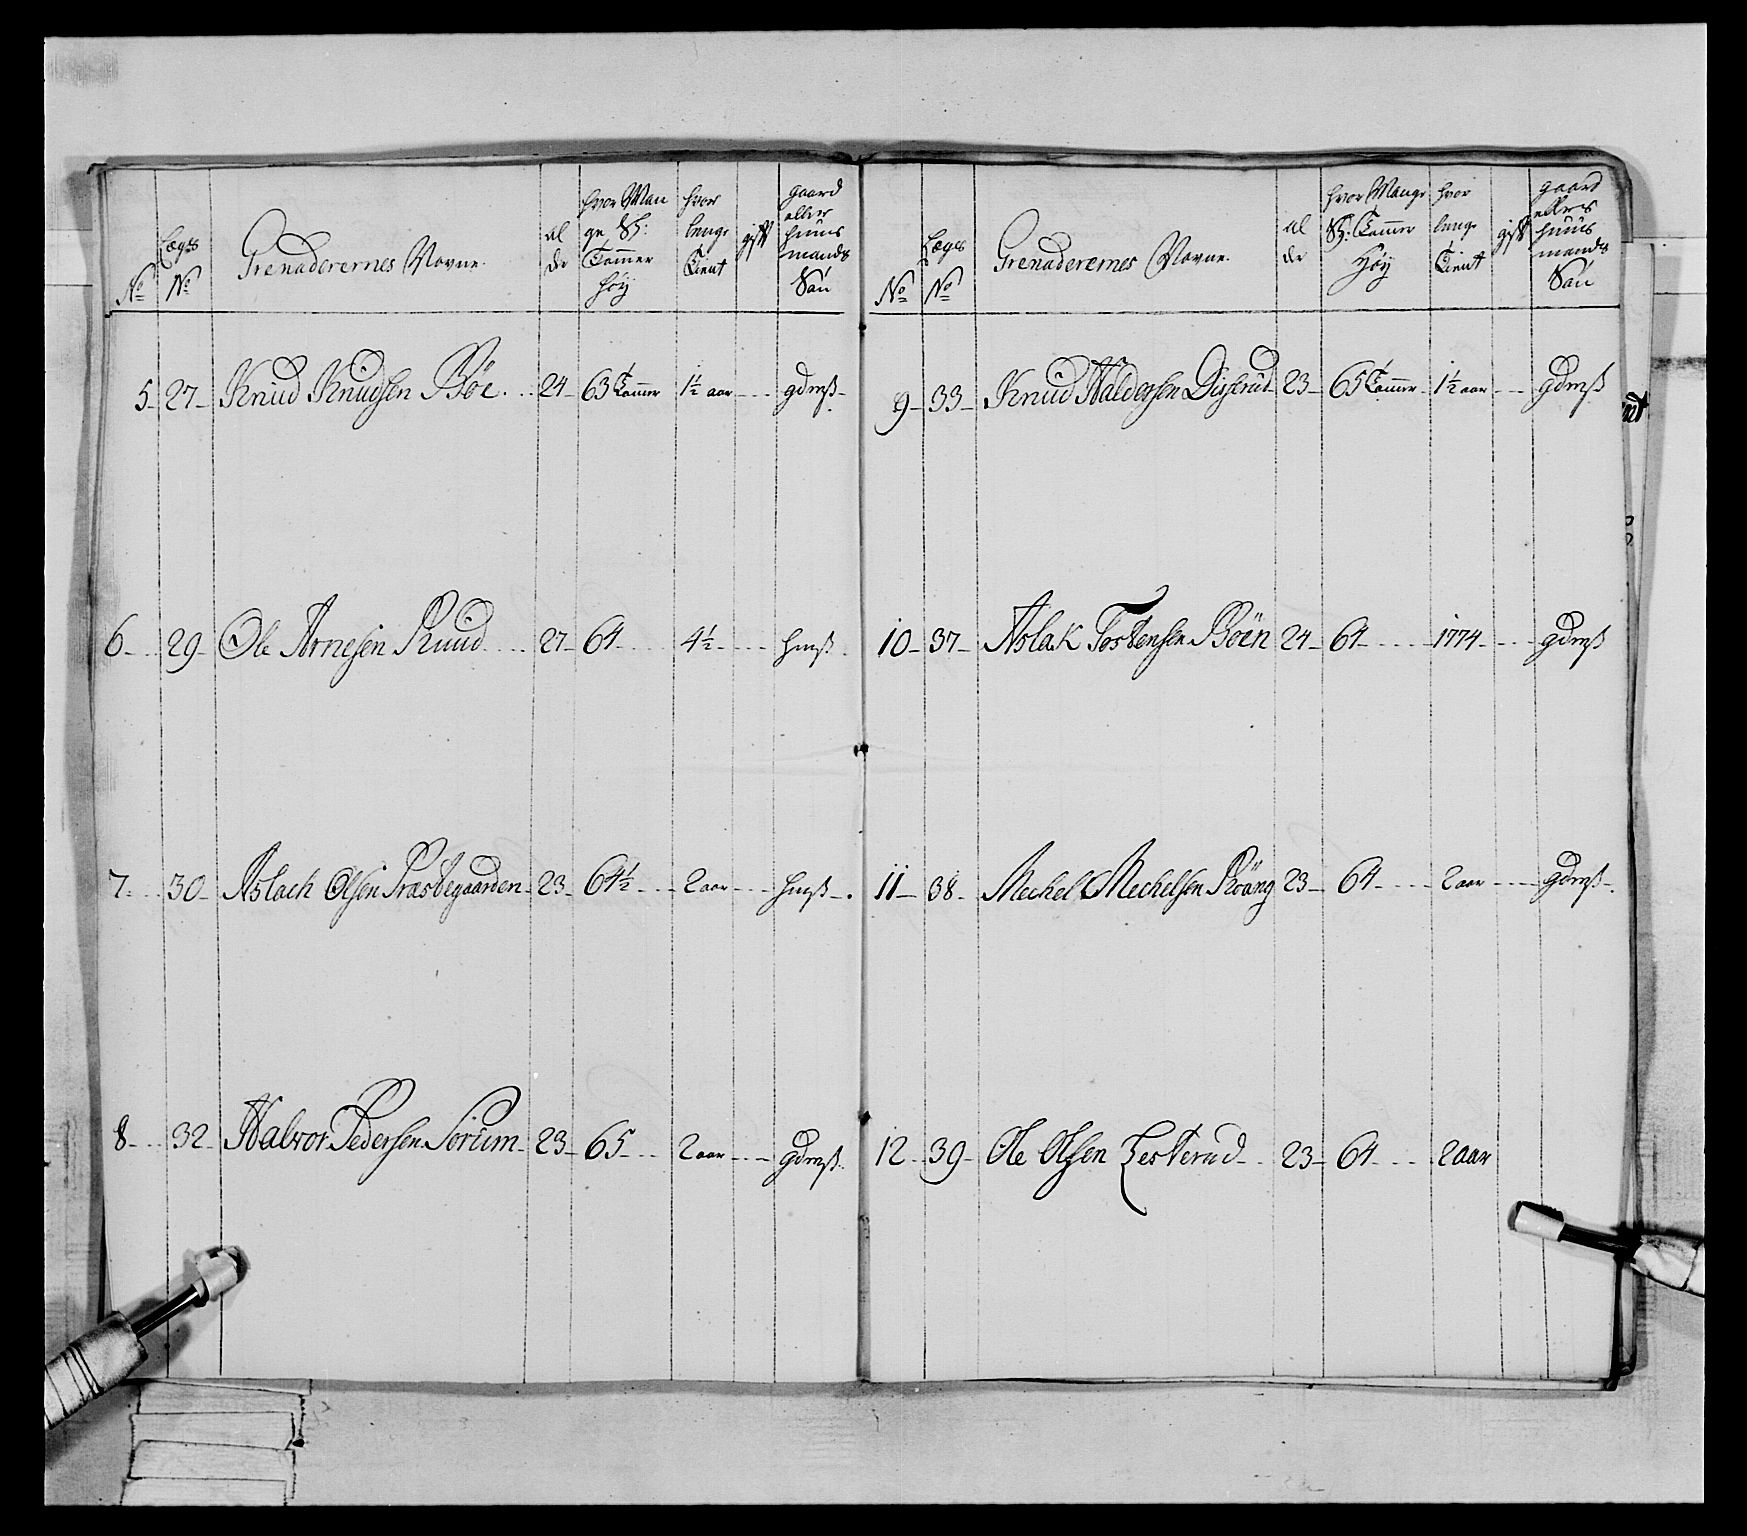 No
Lægs No
Grenaderernes Navne.
al
der
hvor Man
ge S:
Tommer
höy
hvor
lenge
Tient
gift
gaard
eller
huus
mands
Sön
5 - 27 - Knud Knudsen Böe . . 24 - 63 Tommer 1½ aar - - - gdmß -
6 - - 29 - Ole Arnesen Ruud . . . . 27 - 64 - . . . 4½ - . - - - hmß .
7 . - - 30 - Aslach Olsen Præstegaarden - 23 - 64½ - - - 2 aar - - - hmß - .
8 - - - 32 - Halvor Pedersen Sorum - 23 - 65 - . . . 2 aar - - - gdmß .
No
Lægs No
Grenaderernes Navne.
al
der
hvor Mange
S: Tommer
Höy
hvor
lenge
Tient
gift
gaard
eller
huus
mands
Sön
9 - 33 - Knud Haldorsen 23 - 65 Tommer - 1½ aar - - - gdmß
10 - 37 - Aslak Tostensen Böen 24 - 64 - . . . . - 1774 - - - - gdmß
11 - 38 - Mechel Mechelsen 23 - 64 - . . . . 2 aar - - - - gdmß - .
12 - 39 - Ole Olsen Lesterud - . . 23 - 64 - . . . 2 aar